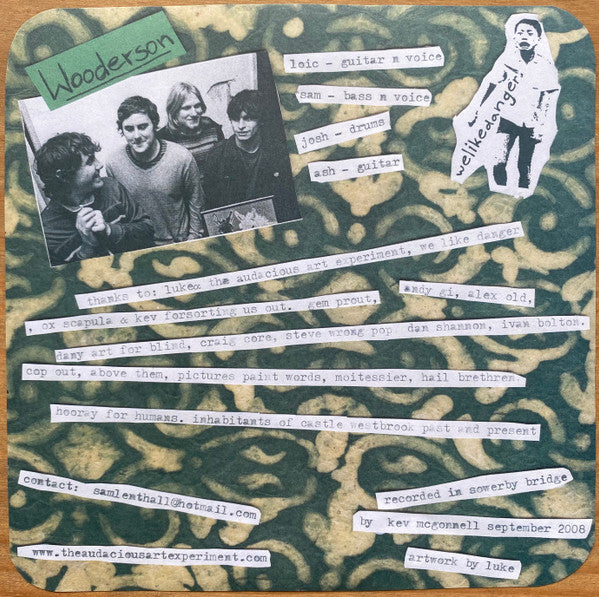 Wooderson
loic - guitar n voice
sam - bass n voice
josh - drums
ash - guitar
welikedanger!
thanks to: luke@ the audacious art experiment, we like danger
, ox scapula & kev forsorting us out. gem prout, andy gi, alex old,
dany art for blind, craig core, steve wrong pop dan shannon, ivan bolton.
cop out, above them, pictures paint words, moitessier, hail brethren.
hooray for humans. inhabitants of castle westbrook past and present
contact: samlenthall@hotmail.com
www.theaudaciousartexperiment.com
recorded in sowerby bridge
by kev mcgonnell september 2008
artwork by luke